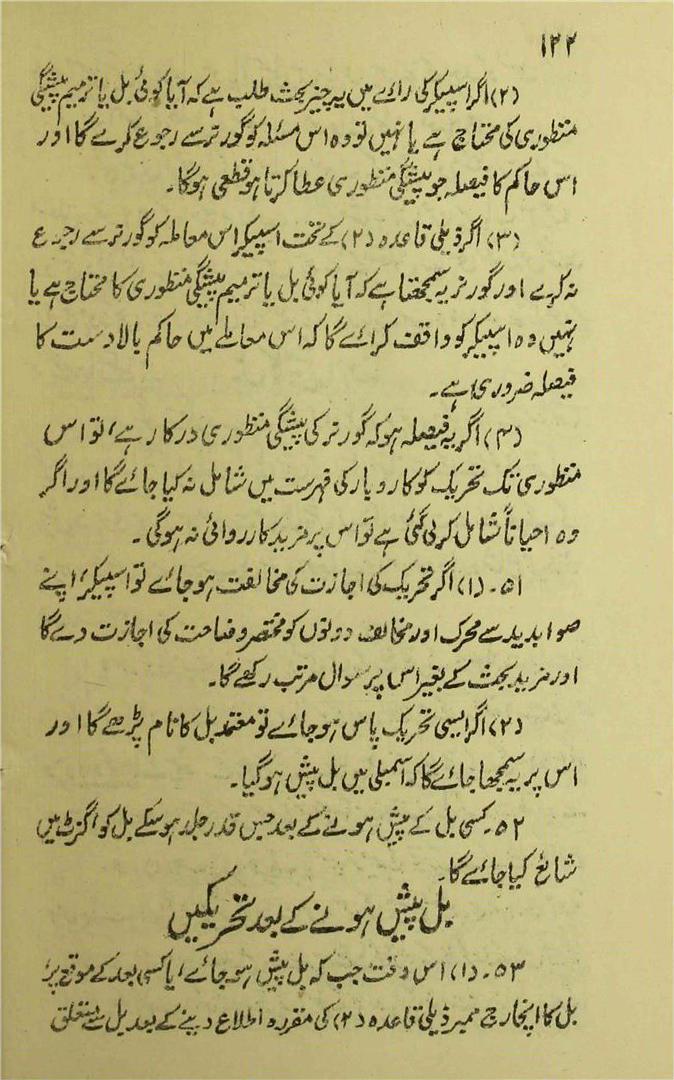 ۱۲۲
(۲) اگر اسپیکر کی رائے میں یہ چیز بحث طلب ہے کہ آیا کوئی بل یا ترمیم پیشگی
منظوری کی محتاج ہے یا نہیں تو وہ اس مسئلہ کو گورنر سے رجوع کرے گا اور
اس حاکم کا فیصلہ جو پیشگی منظوری عطا کرتا ہو قطعی ہوگا۔
(۳) اگر ذیلی قاعدہ (۲) کے تحت اسپیکر اس معاملہ کو گورنر سے رجوع
نہ کرے اور گورنر یہ سمجھتا ہے کہ آیا کوئی بل یا ترمیم پیشگی منظوری کا محتاج ہے یا
نہیں وہ اسپیکر کو واقف کرائے گا کہ اس معاملے میں حاکم بالا دست کا
فیصلہ ضروری ہے۔
(۴) اگر یہ فیصلہ ہو کہ گورنر کی پیشگی منظوری درکار ہے، تو اس
منظوری تک تحریک کو کاروبار کی فہرست میں شامل نہ کیا جائے گا اور اگر
وہ احیاناً شامل کر لی گئی ہے تو اس پر مزید کارروائی نہ ہوگی۔
۵۱۔ (۱) اگر تحریک کی اجازت کی مخالفت ہو جائے تو اسپیکر، اپنے
صوابدید سے محرک اور مخالف دونوں کو مختصر وضاحت کی اجازت دے گا
اور مزید بحث کے بغیر اس پر سوال مرتب رکھے گا۔
(۲) اگر ایسی تحریک پاس ہو جائے تو معتمد بل کا نام پڑھے گا اور
اس پر یہ سمجھا جائے گا کہ اسمبلی میں بل پیش ہو گیا۔
۵۲۔ کسی بل کے پیش ہونے کے بعد جس قدر جلد ہو سکے بل کو گزٹ میں
شائع کیا جائے گا۔
بل پیش ہونے کے بعد تحریکیں
۵۳۔ (۱) اس وقت جب کہ بل پیش ہو جائے، یا کسی بعد کے موقع پر
بل کا انچارج ممبر ذیلی قاعدہ (۲) کی مقررہ اطلاع دینے کے بعد بل سے متعلق